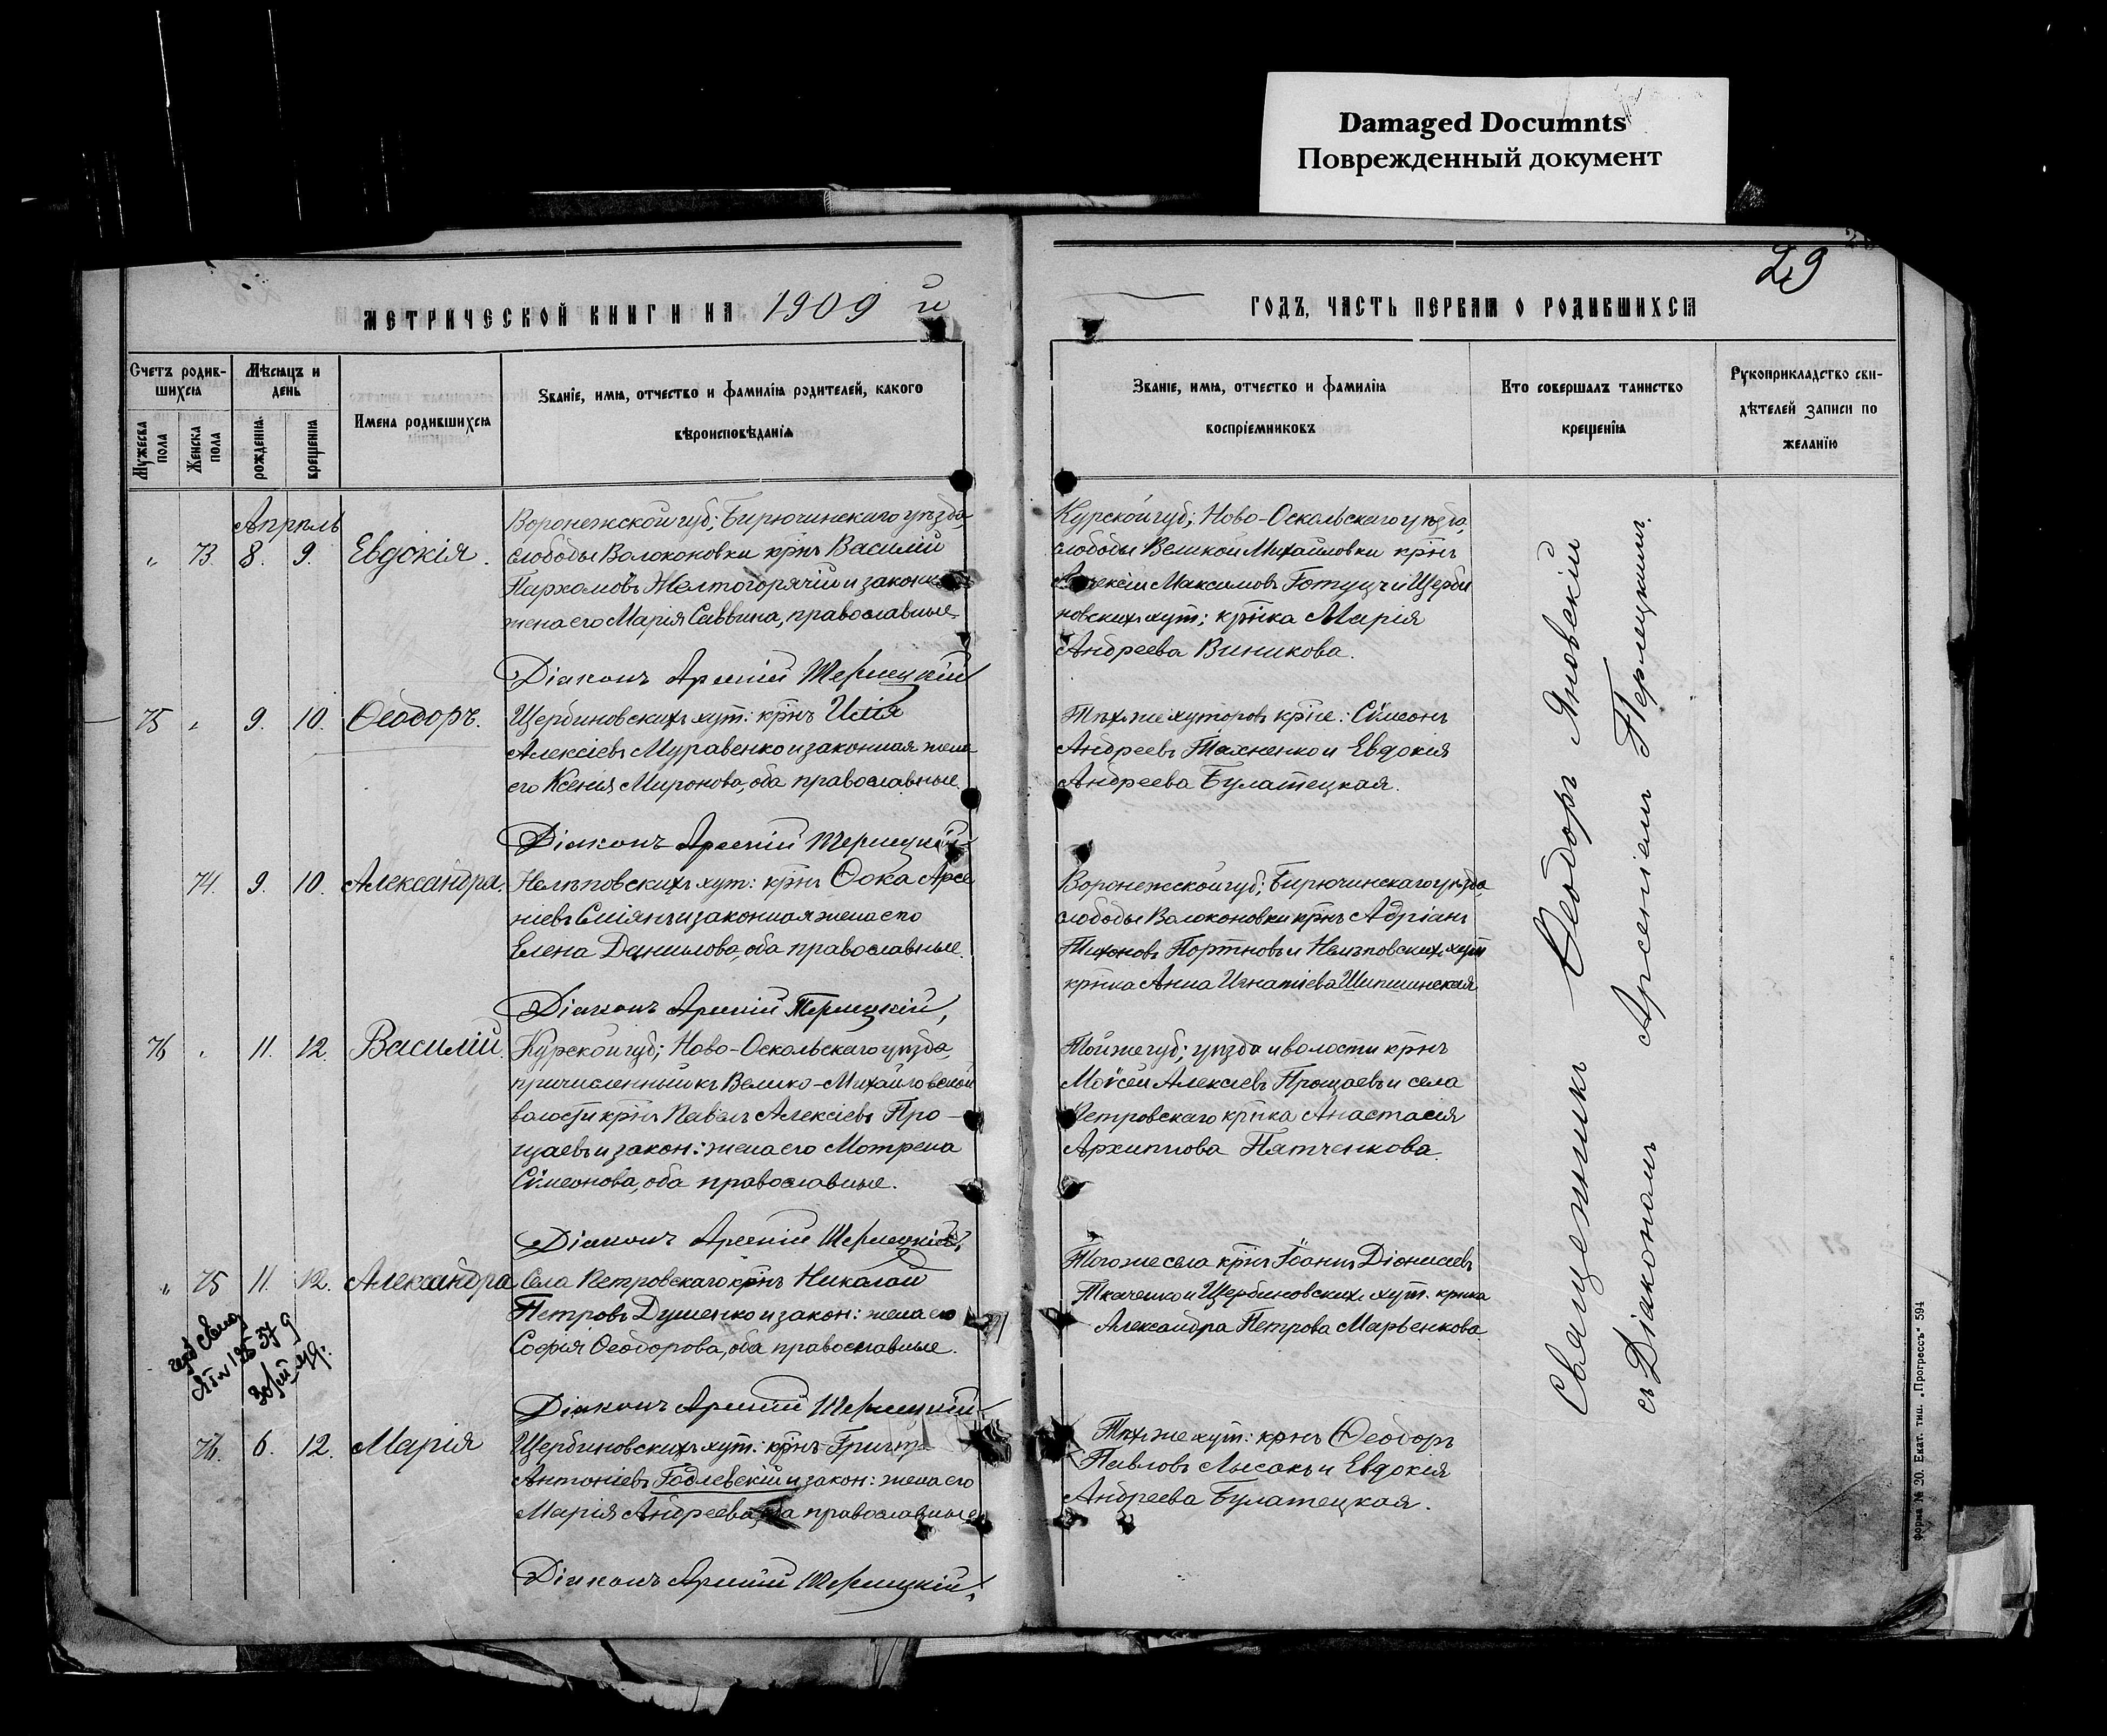 Damaged Documnts
Поврежденный документ
29
МЕТРИЧЕСКОЙ КНИГИ НА 1909 й
ГОДЪ, ЧАСТЬ ПЕРВАЯ О РОДИВШИХСЯ
Счетъ родившихся
Мужеска пола
Женска пола
Мѣсяцъ и день
рожденія
крещенія
Имена родившихся
Званіе, имя, отчество и фамилія родителей, какого
вѣроисповѣданія
Званіе, имя, отчество и фамилія
воспріемниковъ
Кто совершалъ таинство
крещенія
Рукоприкладство сви-
дѣтелей записи по
желанію
Апрѣль
„ 73. 8. 9. Евдокія.
Воронежской губ; Бирючинскаго уѣзда,
слободы Волоконовки крнъ Василій
Пархомовъ Желтогорячій и законная
жена его Марія Саввина, православные
Діаконъ Арсеній Терлецкій
Курской губ; Ново-Оскольскаго уѣзда,
слободы Великой Михайловки крнъ
Алексій Максимовъ Готуцъ и Щерби
новскихъ хут; крнка Марія
Андреева Виникова.
75 „ 9. 10. Ѳеодоръ.
Щербиновскихъ хут: крнъ Илія
Алексіевъ Муравенко и законная жена
его Ксенія Миронова, оба православные.
Діаконъ Арсеній Терлецкій
Тѣхъ же хуторовъ крне: Сѵмеонъ
Андреевъ Тахненко и Евдокія
Андреева Булатецкая.
74. 9. 10. Александра.
Нелѣповскихъ хут: крнъ Ѳока Арсе
ніевъ Сміянъ и законная жена его
Елена Данилова, оба православные.
Діаконъ Арсеній Терлецкій,
Воронежской губ; Бирючинскаго уѣзда,
слободы Волоконовки крнъ Адріанъ
Тихоновъ Портновъ и Нелѣповскихъ хут
крнка Анна Игнатіева Шипшинская
76 „ 11. 12. Василій.
Курской губ; Ново-Оскольскаго уѣзда,
причисленный къ Велико-Михайловской
волости крнъ Павелъ Алексіевъ Про-
щаевъ и закон: жена его Мотрена
Сѵмеонова, оба православные.
Діаконъ Арсеній Терлецкій,
Той же губ; уѣзда и волости крнъ
Моѵсей Алексіевъ Прощаевъ и села
Петровскаго крнка Анастасія
Архиппова Пятченкова.
„ 75 11. 12. Александра
Села Петровскаго крнъ Николай
Петровъ Душенко и закон: жена его
Софія Ѳеодорова, оба православные.
Діаконъ Арсеній Терлецкій
Того же села крнъ Іоаннъ Діонисіевъ
Ткаченко и Щербиновскихъ хут. крнка
Александра Петрова Марьенкова
76. 6. 12. Марія
Щербиновскихъ хут: крнъ
Антоніевъ Годлевскій и закон: жена его
Марія Андреева, оба православные
Діаконъ Арсеній Терлецкій,
Тѣхъ же хут: крнъ Ѳеодоръ
Павловъ Лысакъ и Евдокія
Андреева Булатецкая.
Священникъ Ѳеодоръ Яновскій
съ Діакономъ Арсеніемъ Терлецкимъ.
Форма № 20. Екат. тип. „Прогрессъ“ 594